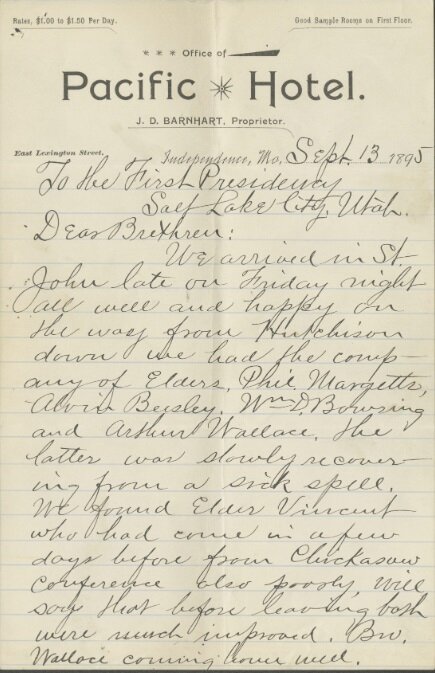 Rates, $1.00 to $1.50 Per Day.
Good Sample Rooms on First Floor.
Office of
Pacific Hotel.
J. D. BARNHART, Proprietor.
East Lexington Street.
Independence, Mo., Sept. 13 1895
To the First Presidency
Salt Lake City, Utah.
Dear Brethren:
We arrived in St.
John late on Friday night
all well and happy on
the way from Hutchison
down we had the comp-
any of Elders, Phil. Margetts,
Alvin Beesley, Wm D. Bowring
and Arthur Wallace. The
latter was slowly recover-
ing from a sick spell.
We found Elder Vincent
who had come in a few
days before from Chickasaw
conference also poorly, will
say that before leaving both
were much improved. Bro.
Wallace coming home well.